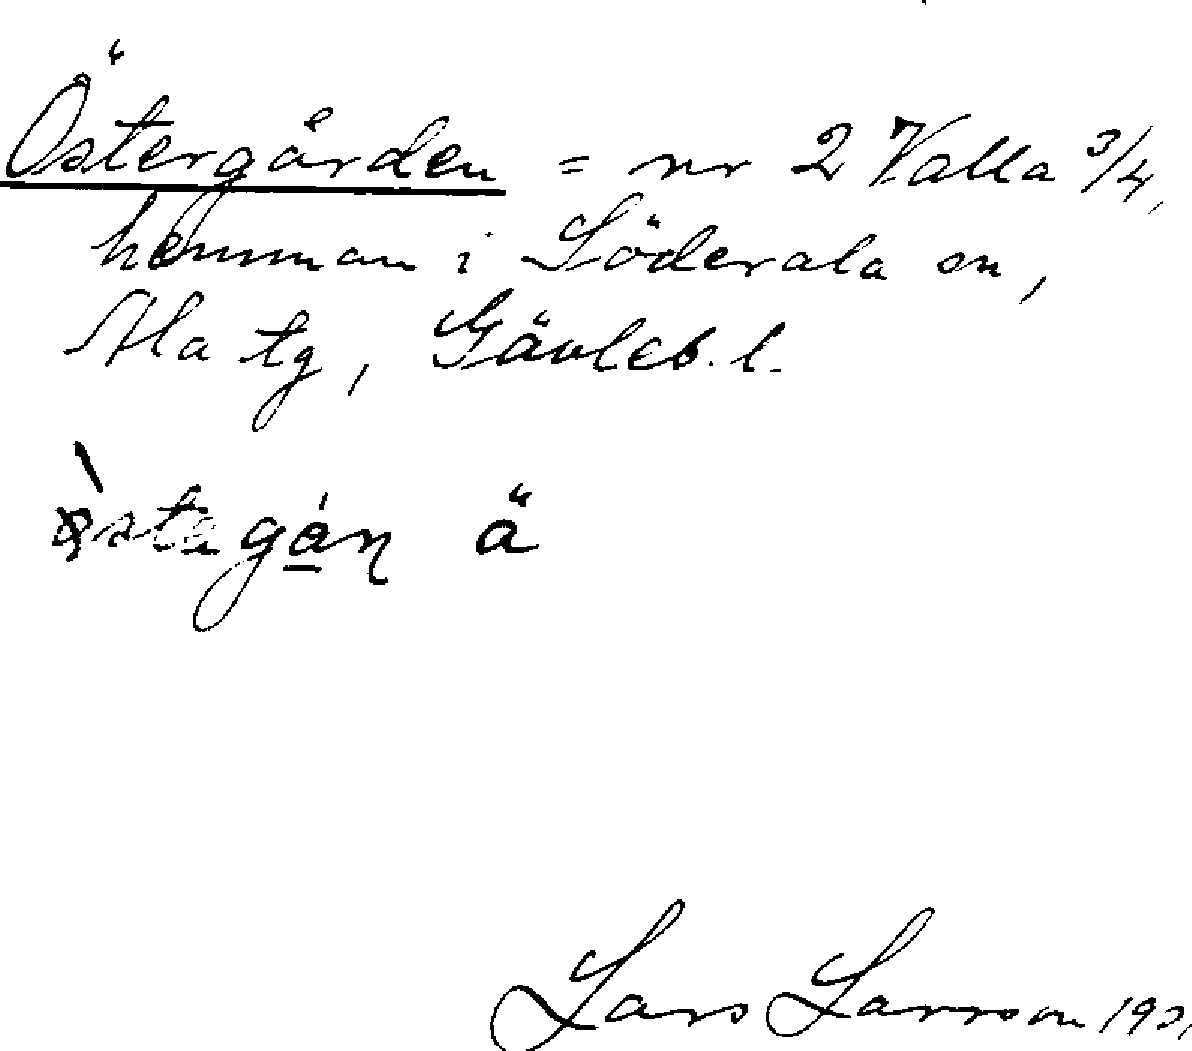 Östergården = nr 2 Valla 3/4,
hemman i Söderala sn,
Ala tg, Gävleb. l.
ä
Lars Larsson